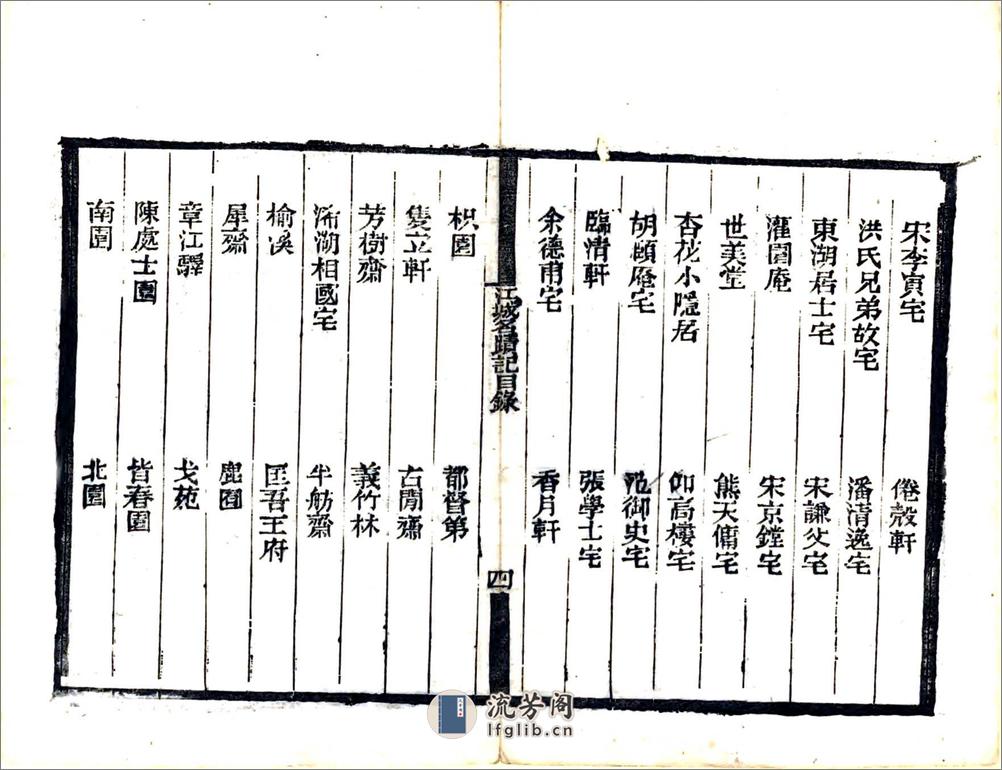 宋李寅宅 倦殼軒
洪氏兄弟故宅 潘清逸宅
東湖居士宅 宋謙父宅
灌園庵 宋京鏜宅
世美堂 熊天傭宅
杏花小隱居 如高樓宅
胡頤庵宅 范御史宅
臨清軒 張學士宅
余德甫宅 香月軒
江城名蹟記目錄 四
枳園 都督第
隻立軒 古閒齋
芳樹齋 義竹林
湖相國宅 半舫齋
榆溪 匡吾王府
犀齋 鹿園
章江驛 戈苑
陳處士園 皆春園
南園 北園
流芳阁
lfglib.cn